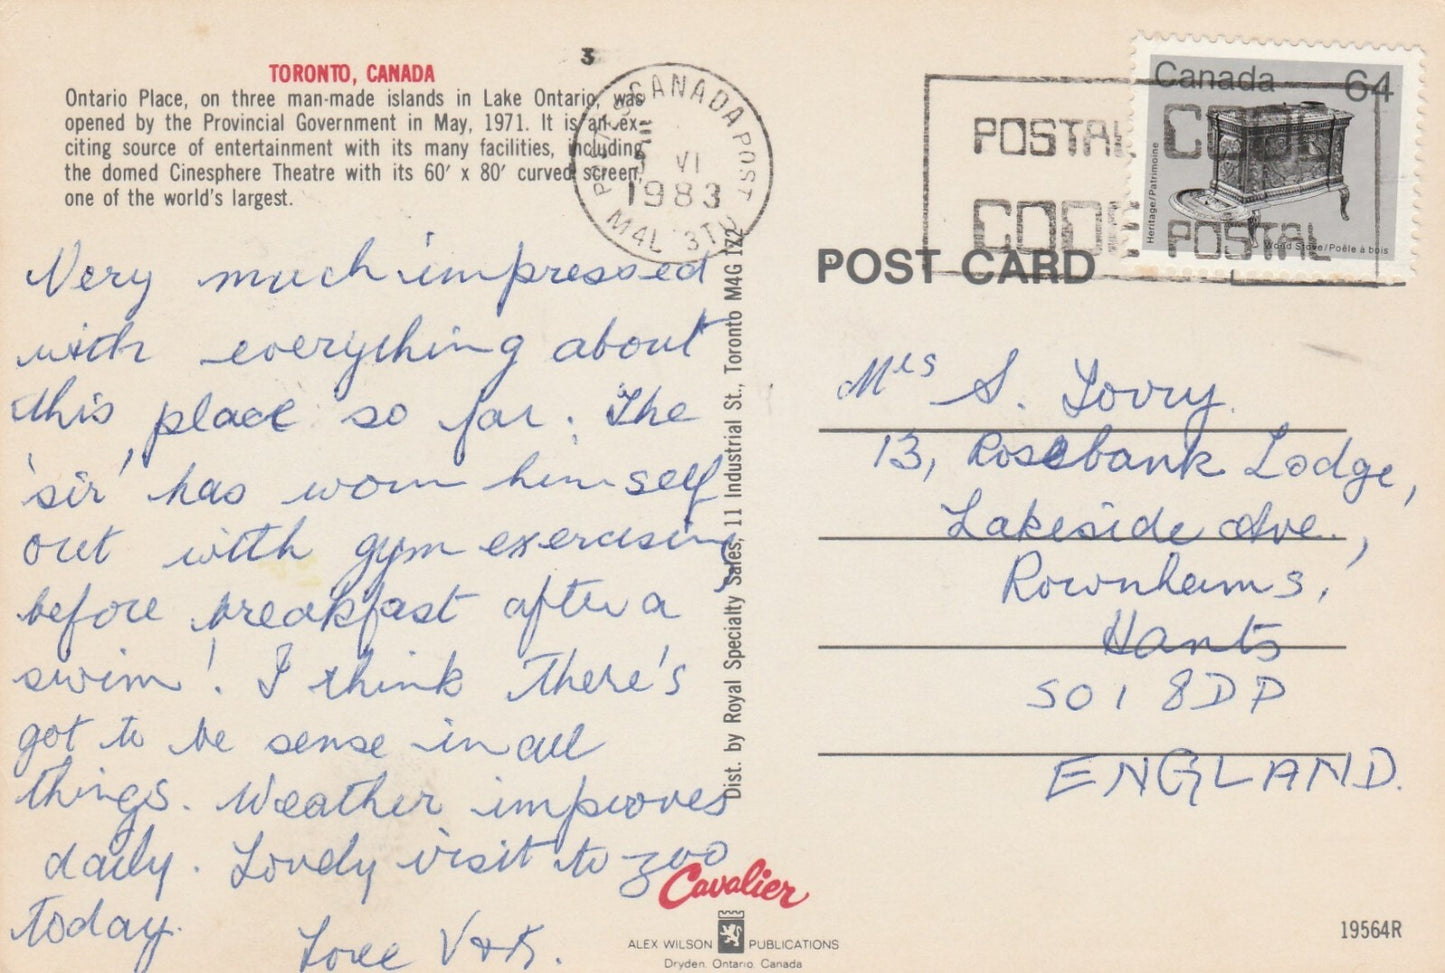 TORONTO, CANADA
Ontario Place, on three man-made islands in Lake Ontario, was
opened by the Provincial Government in May, 1971. It is an ex-
citing source of entertainment with its many facilities, including
the domed Cinesphere Theatre with its 60' x 80' curved screen,
one of the world's largest.
Very much impressed
with everything about
this place so far. The
'sir' has worn himself
out with gym exercising
before breakfast after a
swim! I think there's
got to be sense in all
things. Weather improves
daily. Lovely visit to zoo
today.
Love V & K.
3
CANADA POST
VI
1983
M4L 3T0
Dist. by Royal Specialty Sales, 11 Industrial St., Toronto M4G 1Z2
POSTAL CODE
CODE POSTAL
Canada 64
Heritage/Patrimoine
Wood Stove/Poêle à bois
POST CARD
Mrs S. Lovry.
13, Rosebank Lodge,
Lakeside Ave.,
Rownhams,
Hants
SO1 8DP
ENGLAND.
Cavalier
ALEX WILSON PUBLICATIONS
Dryden, Ontario, Canada
19564R